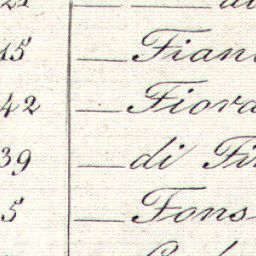 15 — Fian
42 — Fiora
39 — di Fi
5 — Fons